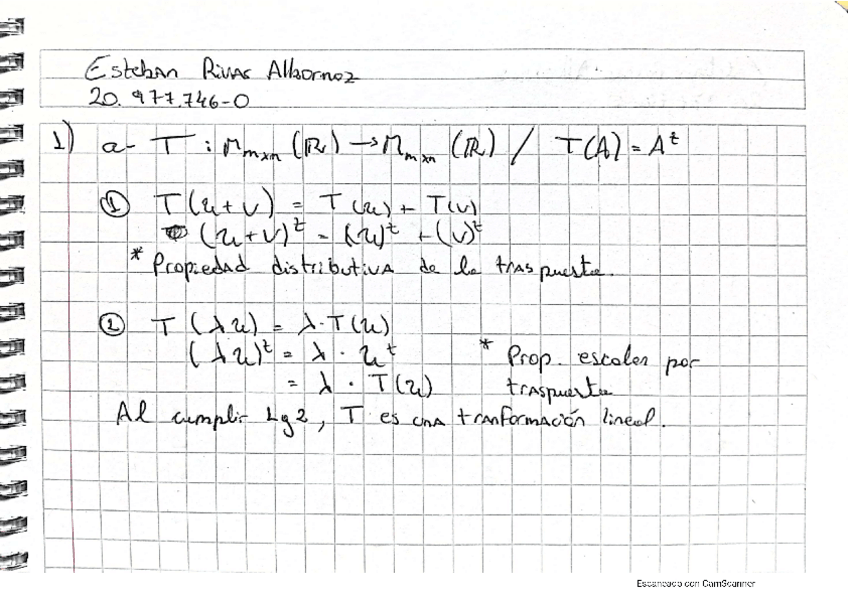 Esteban Rivas Albornoz
20.977.746-0
1) a- T : M_{mxn} (ℝ) → M_{mxn} (ℝ) / T(A) = A^t
① T(u+v) = T(u) + T(v)
(u+v)^t = (u)^t + (v)^t
* Propiedad distributiva de la traspuesta.
② T(λu) = λ·T(u)
(λu)^t = λ · u^t * Prop. escalar por
= λ · T(u) traspuesta
Al cumplir 1 y 2, T es una tranformación lineal.
Escaneado con CamScanner